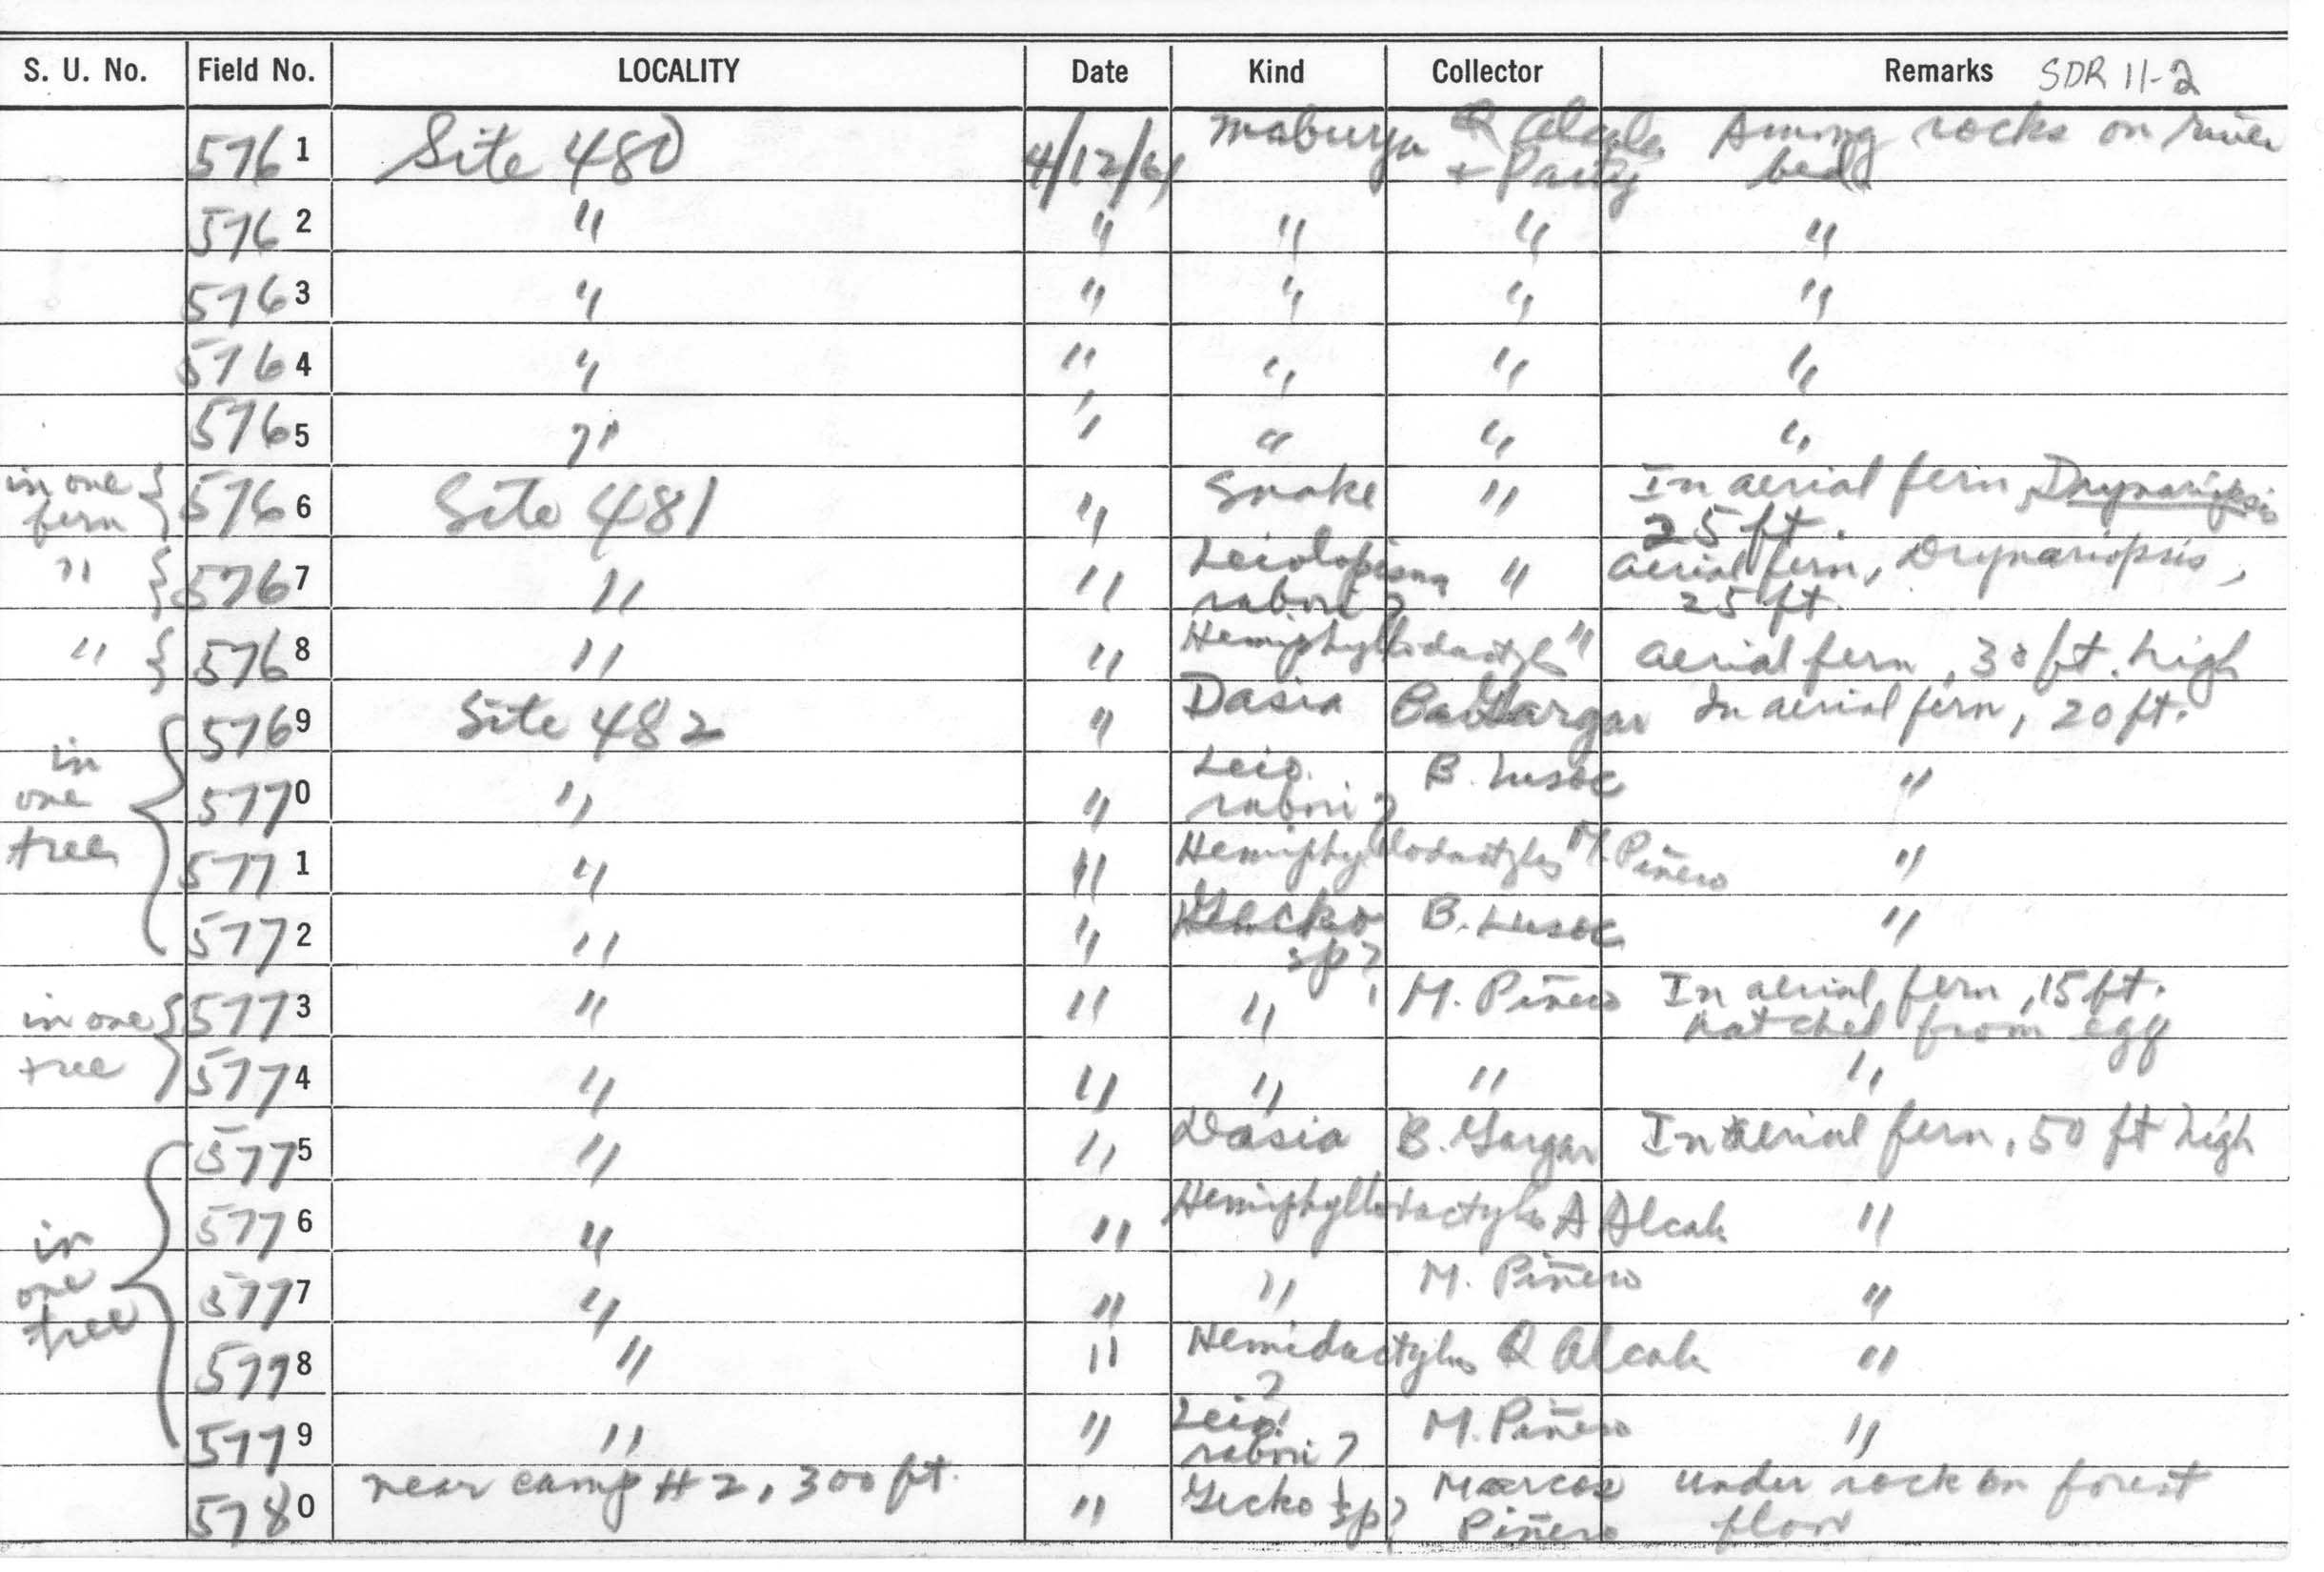 S. U. No. Field No. LOCALITY Date Kind Collector Remarks SDR 11-2
5761 Site 480 4/12/61 Mabuya Q Alcala + Party Among rocks on river bed
5762 " " " " "
5763 " " " " "
5764 " " " " "
5765 " " " " "
in one fern { 5766 Site 481 " Snake " In aerial fern, Drynariopsis 25 ft.
" { 5767 " " Leiolopisma rabori? " Aerial fern, Drynariopsis, 25 ft.
" { 5768 " " Hemiphyllodactylus " Aerial fern, 30 ft. high
5769 Site 482 " Dasia B. Gargar In aerial fern, 20 ft.
in one tree { 5770 " " Leio. rabori? B. Lusoc "
5771 " " Hemiphyllodactylus M. Piñero "
5772 " " Gecko sp? B. Lusoc "
in one tree { 5773 " " " M. Piñero In aerial fern, 15 ft. hatched from egg
5774 " " " " "
5775 " " Dasia B. Gargar In aerial fern, 50 ft high
in one tree { 5776 " " Hemiphyllodactylus A Alcala "
5777 " " " M. Piñero "
5778 " " Hemidactylus ? Q Alcala "
5779 " " Leio. rabori? M. Piñero "
5780 near camp #2, 300 ft. " Gecko sp? Marcos Piñero under rock on forest floor